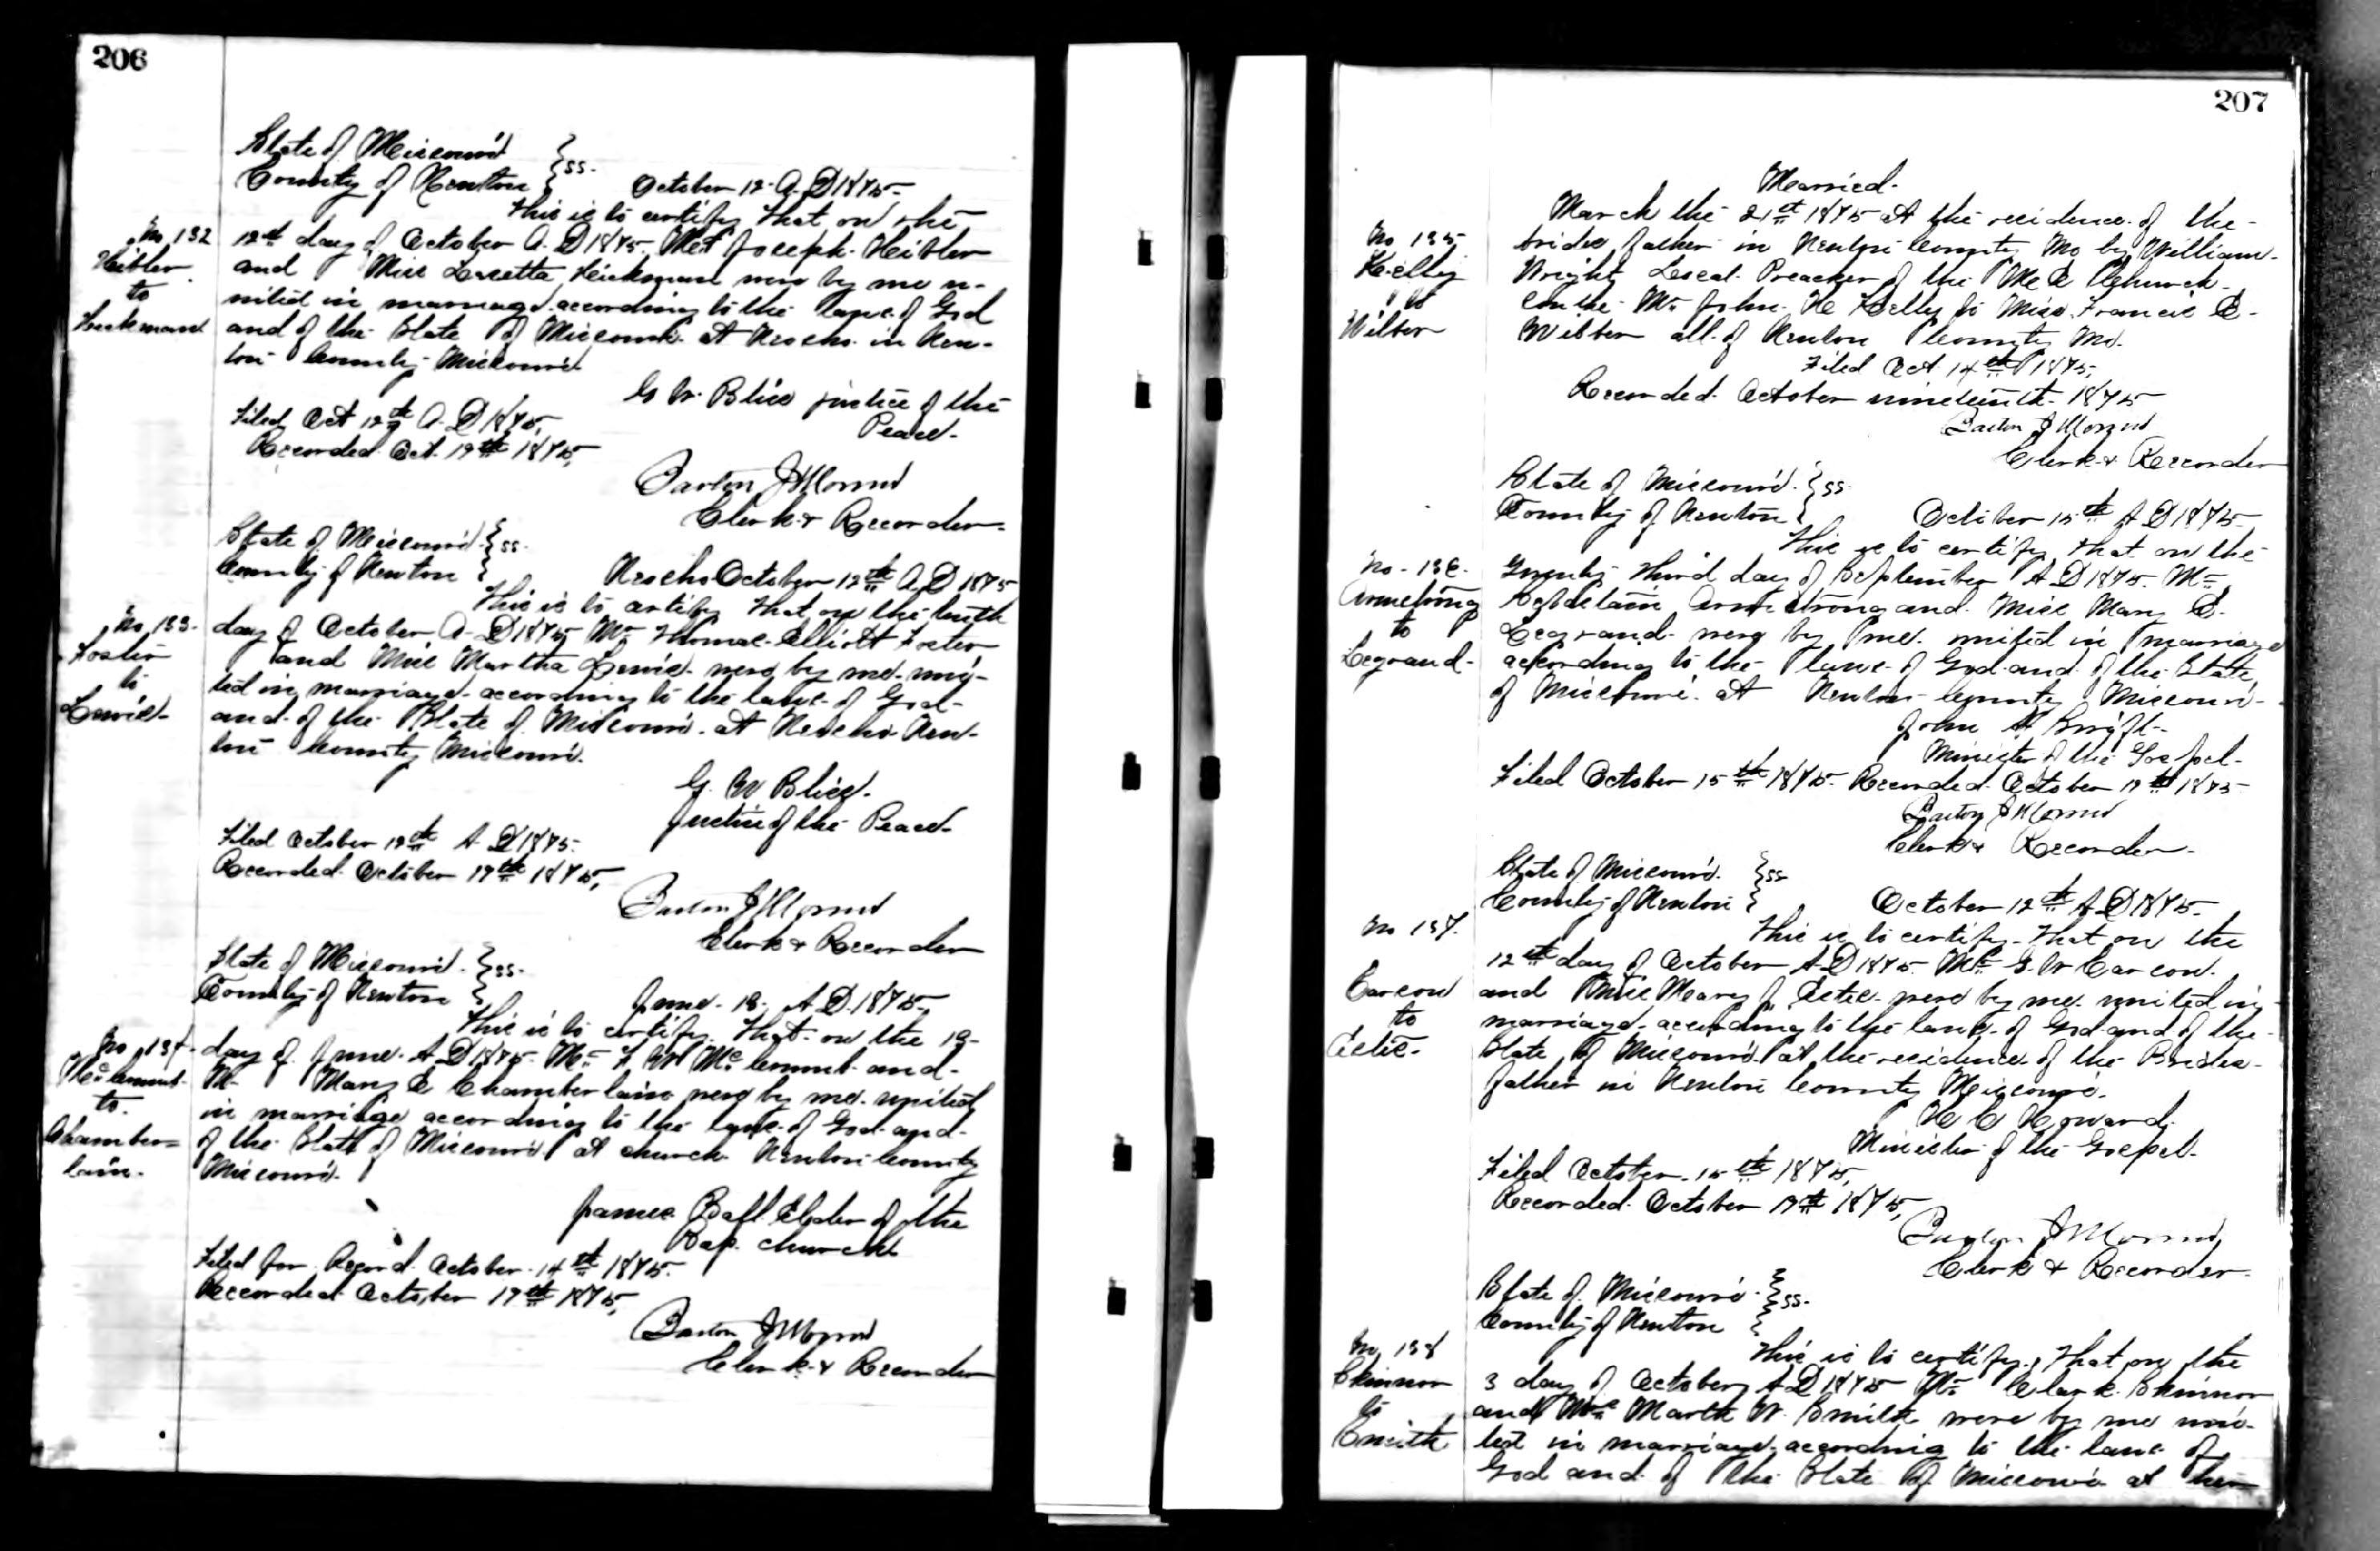 206
State of Missouri } ss.
County of Newton } October 12. A. D 1875.
This is to certify that on the
No 132
Heibler
to
Hickman
12th day of October A. D 1875. Mr Joseph Heibler
and Miss Luretta Hickman were by me u-
nited in marriage according to the laws of God
and of the State of Missouri at Neosho in New-
ton County Missouri
G W. Bliss justice of the
Peace.
Filed Oct 12th A. D 1875,
Recorded Oct. 19th 1875,
Barton J Morrow
Clerk & Recorder
State of Missouri } ss.
County of Newton } Neosho October 12th A. D 1875
This is to certify that on the tenth
No 133.
Foster
to
Lewis
day of October A. D 1875 Mr Thomas Elliott Foster
and Miss Martha Lewis were by me uni-
ted in marriage according to the laws of God
and of the State of Missouri at Neosho New-
ton County Missouri.
G. W Bliss.
Justice of the Peace
Filed October 12th A D 1875.
Recorded October 19th 1875,
Barton J Morrow
Clerk & Recorder
State of Missouri } ss.
County of Newton } June 18. A. D. 1875,
This is to certify that on the 18
No 134
to
Chamber=
lain.
day of June A D 1875 Mr and
M Mary E Chamberlain were by me united
in marriage according to the laws of God and
of the State of Missouri at church Newton County
Missouri.
James Ball Elder of the
Bap. church
Filed for Record October 14th 1875.
Recorded October 19th 1875,
Barton J Morrow
Clerk & Recorder
207
Married.
March the 21st 1875 at the residence of the
No 135
Kelly
to
Wilber
brides father in Newton County Mo by William
Wright Local Preacher of the M E Church
Mr John H Kelly to Miss Francis E.
Wilber all of Newton County Mo.
Filed Oct 14th 1875,
Recorded October nineteenth 1875
Barton J Morrow
Clerk & Recorder
State of Missouri } ss
County of Newton } October 15th A D 1875
This is to certify that on the
No. 136.
Armstrong
to
Legrand
Twenty third day of September A D 1875. Mr
Armstrong and Miss Mary E.
Legrand were by me united in marriage
according to the laws of God and of the State
of Missouri at Newton County Missouri
John H
Minister of the Gospel
Filed October 15th 1875. Recorded October 19th 1875
Barton J Morrow
Clerk & Recorder
State of Missouri } ss
County of Newton } October 12th A D 1875.
This is to certify that on the
No 137.
Carson
to
12th day of October A D 1875. Mr G. W Carson
and Miss Mary J were by me united in
marriage according to the laws of God and of the
State of Missouri at the residence of the Brides
father in Newton County Missouri.
H C Howard
Minister of the Gospel
Filed October 15th 1875,
Recorded October 19th 1875,
Barton J Morrow
Clerk & Recorder
State of Missouri } ss.
County of Newton }
This is to certify that on the
No 138
Skinnor
to
Smith
3 day of October A D 1875 Mr Clark Skinnor
and Mrs W. Smith were by me uni-
ted in marriage according to the laws of
God and of the State of Missouri at her